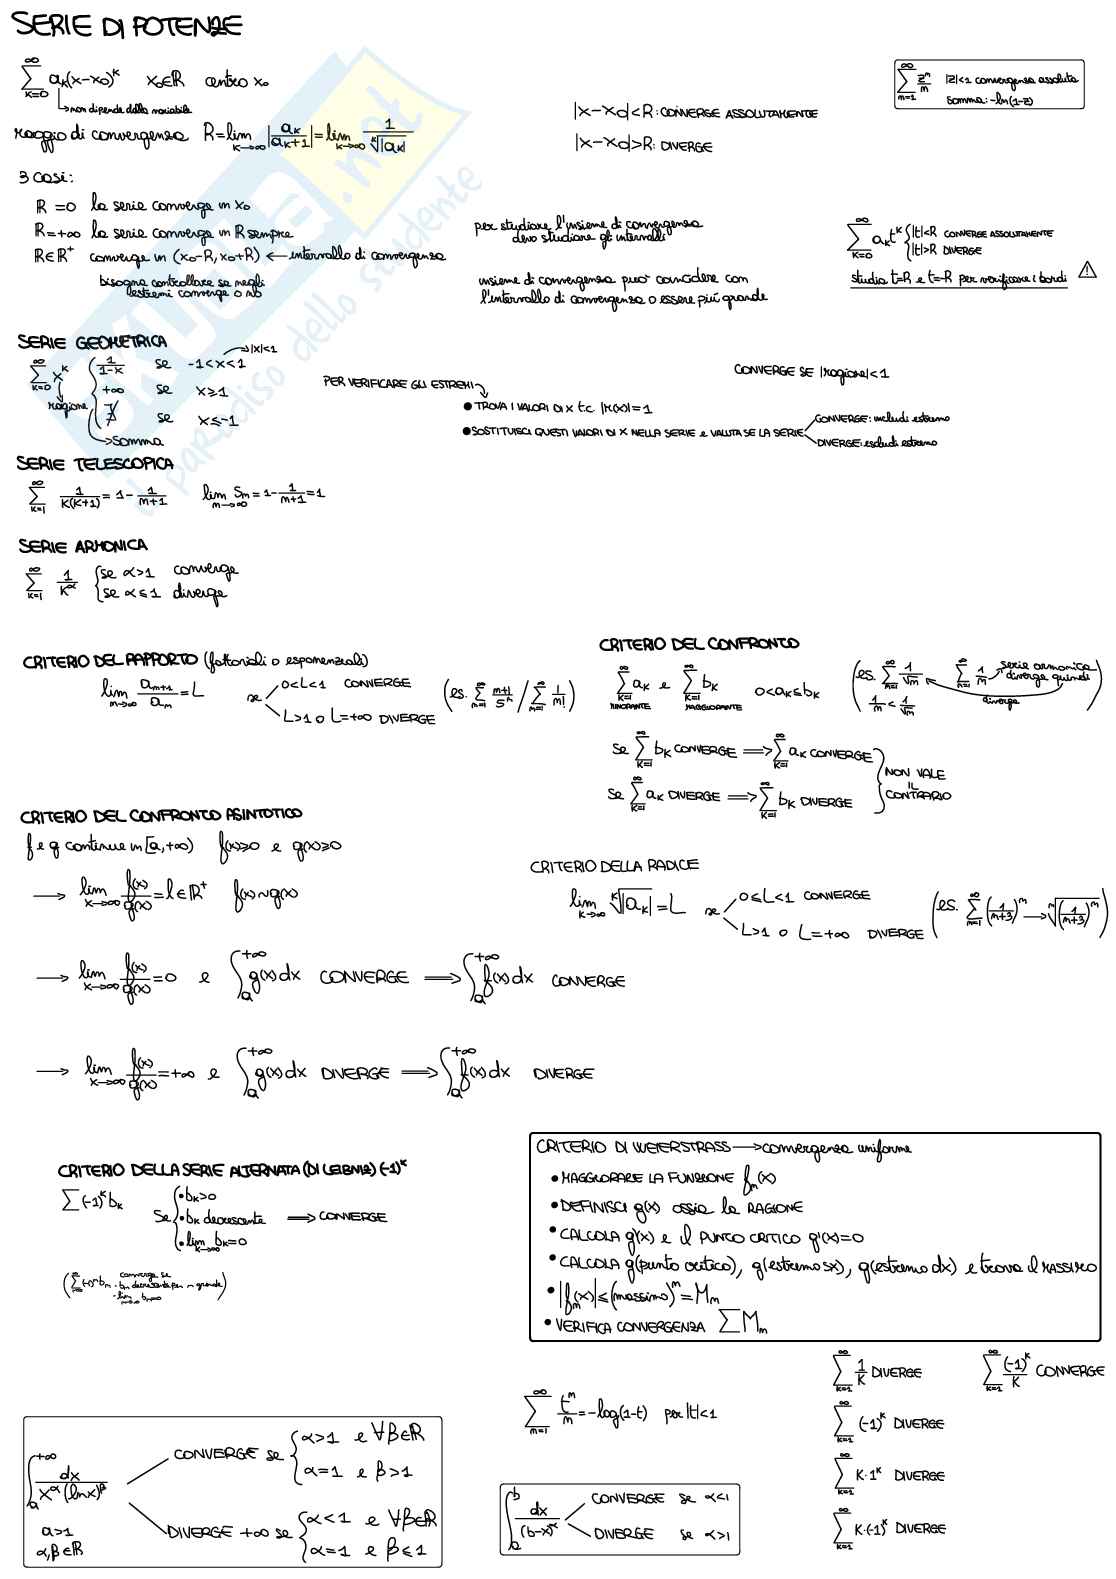 SERIE DI POTENZE
∞∑k=0 a_k(x-x₀)^k x₀∈ℝ centro x₀
↳non dipende dalla variabile
∞∑n=1 z^n/n |z|<1 convergenza assoluta
Somma: -ln(1-z)
raggio di convergenza R=lim k→∞ |a_k/a_k+1|=lim k→∞ 1/ᵏ√|a_k|
|x-x₀|<R: CONVERGE ASSOLUTAMENTE
|x-x₀|>R: DIVERGE
3 casi:
R =0 la serie converge in x₀
R=+∞ la serie converge in R sempre
R∈ℝ⁺ converge in (x₀-R, x₀+R) ← intervallo di convergenza
bisogna controllare se negli
estremi converge o no
per studiare l'insieme di convergenza
devo studiare gli intervalli
insieme di convergenza può coincidere con
l'intervallo di convergenza o essere più grande
∞∑k=0 a_k t^k { |t|<R CONVERGE ASSOLUTAMENTE
|t|>R DIVERGE
studia t=R e t=-R per verificare i bordi ⚠
SERIE GEOMETRICA
∞∑k=0 x^k { 1/(1-x) se -1<x<1 →|x|<1
+∞ se x≥1
∄ se x≤-1
ragione
→Somma
PER VERIFICARE GLI ESTREMI
CONVERGE SE |ragione|<1
• TROVA I VALORI DI X t.c. |r(x)|=1
• SOSTITUISCI QUESTI VALORI DI X NELLA SERIE e VALUTA SE LA SERIE
CONVERGE: includi estremo
DIVERGE: escludi estremo
SERIE TELESCOPICA
∞∑k=1 1/(k(k+1)) = 1- 1/(n+1) lim n→∞ S_n=1- 1/(n+1)=1
SERIE ARMONICA
∞∑k=1 1/k^α { se α>1 converge
se α≤1 diverge
CRITERIO DEL RAPPORTO (fattoriali o esponenziali)
lim n→∞ a_n+1/a_n=L se 0<L<1 CONVERGE
L>1 o L=+∞ DIVERGE
(es. ∞∑n=1 n+1/5^n / ∞∑n=1 1/n!)
CRITERIO DEL CONFRONTO
∞∑k=1 a_k e ∞∑k=1 b_k 0<a_k≤b_k
MINORANTE MAGGIORANTE
(es. ∞∑n=1 1/√n ∞∑n=1 1/n serie armonica
diverge quindi
1/n < 1/√n diverge)
Se ∞∑k=1 b_k CONVERGE ⟹ ∞∑k=1 a_k CONVERGE
Se ∞∑k=1 a_k DIVERGE ⟹ ∞∑k=1 b_k DIVERGE
NON VALE
IL
CONTRARIO
CRITERIO DEL CONFRONTO ASINTOTICO
f e g continue in [a,+∞) f(x)≥0 e g(x)≥0
→ lim x→∞ f(x)/g(x)=l∈ℝ⁺ f(x)~g(x)
→ lim x→∞ f(x)/g(x)=0 e ∫a+∞ g(x)dx CONVERGE ⟹ ∫a+∞ f(x)dx CONVERGE
→ lim x→∞ f(x)/g(x)=+∞ e ∫a+∞ g(x)dx DIVERGE ⟹ ∫a+∞ f(x)dx DIVERGE
CRITERIO DELLA RADICE
lim k→∞ ᵏ√|a_k|=L se 0≤L<1 CONVERGE
L>1 o L=+∞ DIVERGE
(es. ∞∑n=1 (1/(n+3))^n → ⁿ√(1/(n+3))^n)
CRITERIO DELLA SERIE ALTERNATA (DI LEIBNIZ) (-1)^k
∑(-1)^k b_k Se { •b_k>0
•b_k decrescente ⟹ CONVERGE
•lim k→∞ b_k=0
(∞∑n=0 (-1)^n b_n converge se
•b_n decrescente per n grande
•lim n→∞ b_n=0)
CRITERIO DI WEIERSTRASS → convergenza uniforme
• MAGGIORARE LA FUNZIONE f_n(x)
• DEFINISCI g(x) ossia la RAGIONE
• CALCOLA g'(x) e il PUNTO CRITICO g'(x)=0
• CALCOLA g(punto critico), g(estremo sx), g(estremo dx) e trova il MASSIMO
• |f_n(x)|≤(massimo)^n=M_n
• VERIFICA CONVERGENZA ∑M_n
∞∑k=1 1/k DIVERGE
∞∑k=1 (-1)^k/k CONVERGE
∞∑n=1 t^n/n=-log(1-t) per |t|<1
∞∑k=1 (-1)^k DIVERGE
∞∑k=1 k·1^k DIVERGE
∞∑k=1 k·(-1)^k DIVERGE
∫a+∞ dx/(x^α(lnx)^β)
CONVERGE se { α>1 e ∀β∈ℝ
α=1 e β>1
DIVERGE +∞ se { α<1 e ∀β∈ℝ
α=1 e β≤1
a>1
α,β∈ℝ
∫ab dx/(b-x)^α CONVERGE se α<1
DIVERGE se α>1
skuola.net
il paradiso dello studente